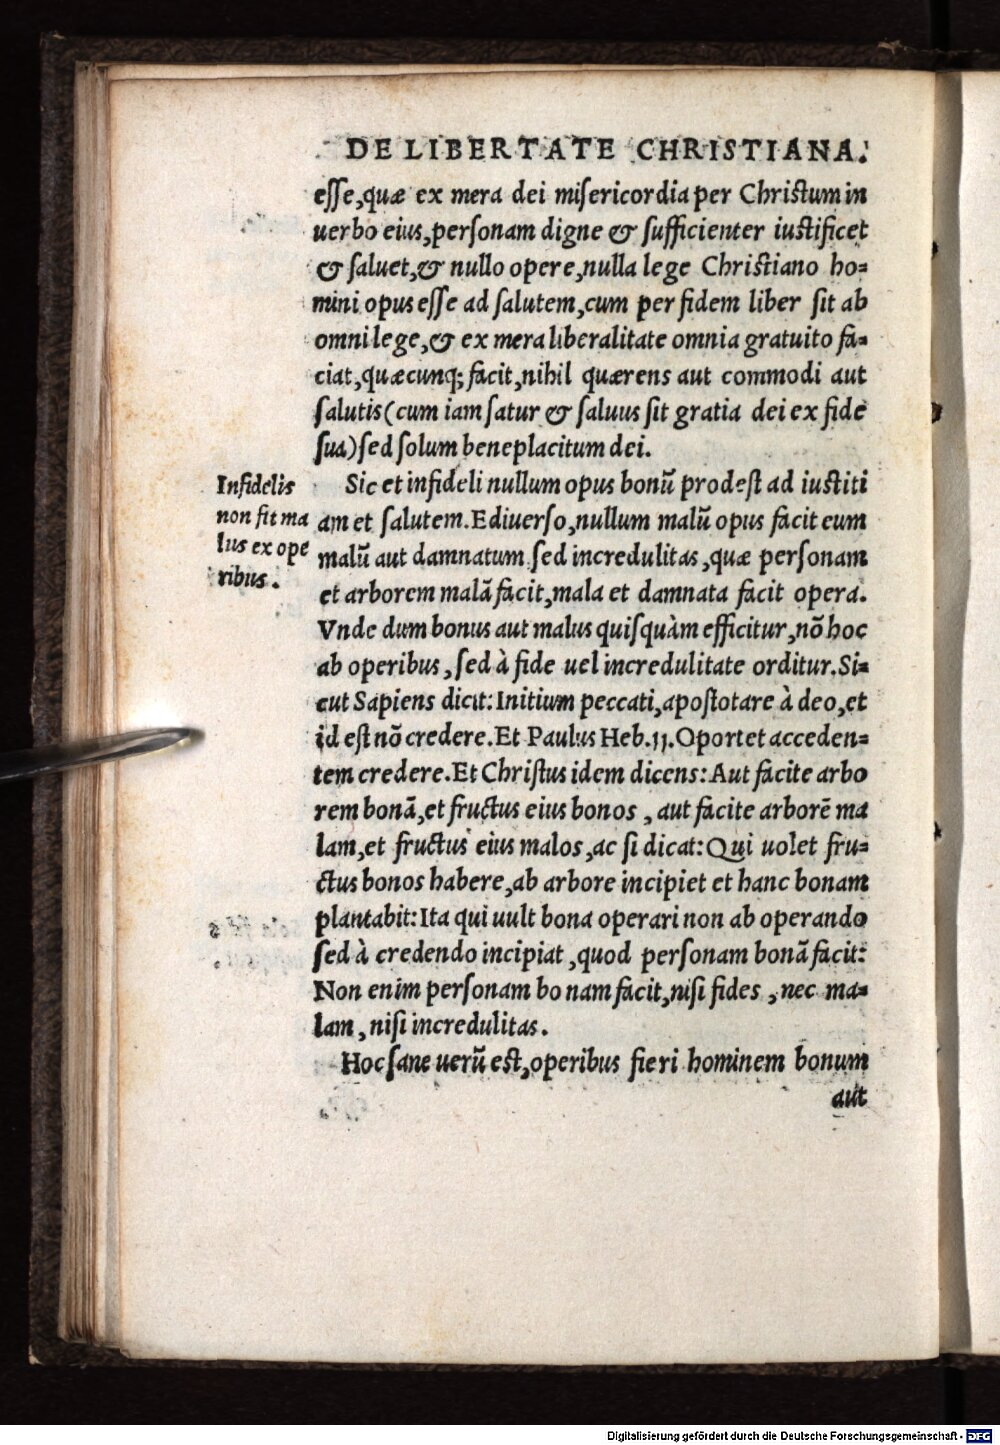 DE LIBERTATE CHRISTIANA.
esse, quæ ex mera dei misericordia per Christum in
uerbo eius, personam digne & sufficienter iustificet
& saluet, & nullo opere, nulla lege Christiano ho=
mini opus esse ad salutem, cum per fidem liber sit ab
omni lege, & ex mera liberalitate omnia gratuito fa=
ciat, quæcunq; facit, nihil quærens aut commodi aut
salutis (cum iam satur & saluus sit gratia dei ex fide
sua) sed solum beneplacitum dei.
Infidelis
non fit ma
lus ex ope
ribus.
Sic et infideli nullum opus bonũ prodest ad iustiti
am et salutem. E diuerso, nullum malũ opus facit eum
malũ aut damnatum sed incredulitas, quæ personam
et arborem malã facit, mala et damnata facit opera.
Vnde dum bonus aut malus quisquàm efficitur, nõ hoc
ab operibus, sed à fide uel incredulitate orditur. Si=
cut Sapiens dicit: Initium peccati, apostotare à deo, et
id est nõ credere. Et Paulus Heb. 11. Oportet acceden=
tem credere. Et Christus idem dicens: Aut facite arbo
rem bonã, et fructus eius bonos, aut facite arborẽ ma
lam, et fructus eius malos, ac si dicat: Qui uolet fru=
ctus bonos habere, ab arbore incipiet et hanc bonam
plantabit: Ita qui uult bona operari non ab operando
sed à credendo incipiat, quod personam bonã facit:
Non enim personam bo nam facit, nisi fides, nec ma=
lam, nisi incredulitas.
Hoc sane uerũ est, operibus fieri hominem bonum
aut
Digitalisierung gefördert durch die Deutsche Forschungsgemeinschaft - DFG